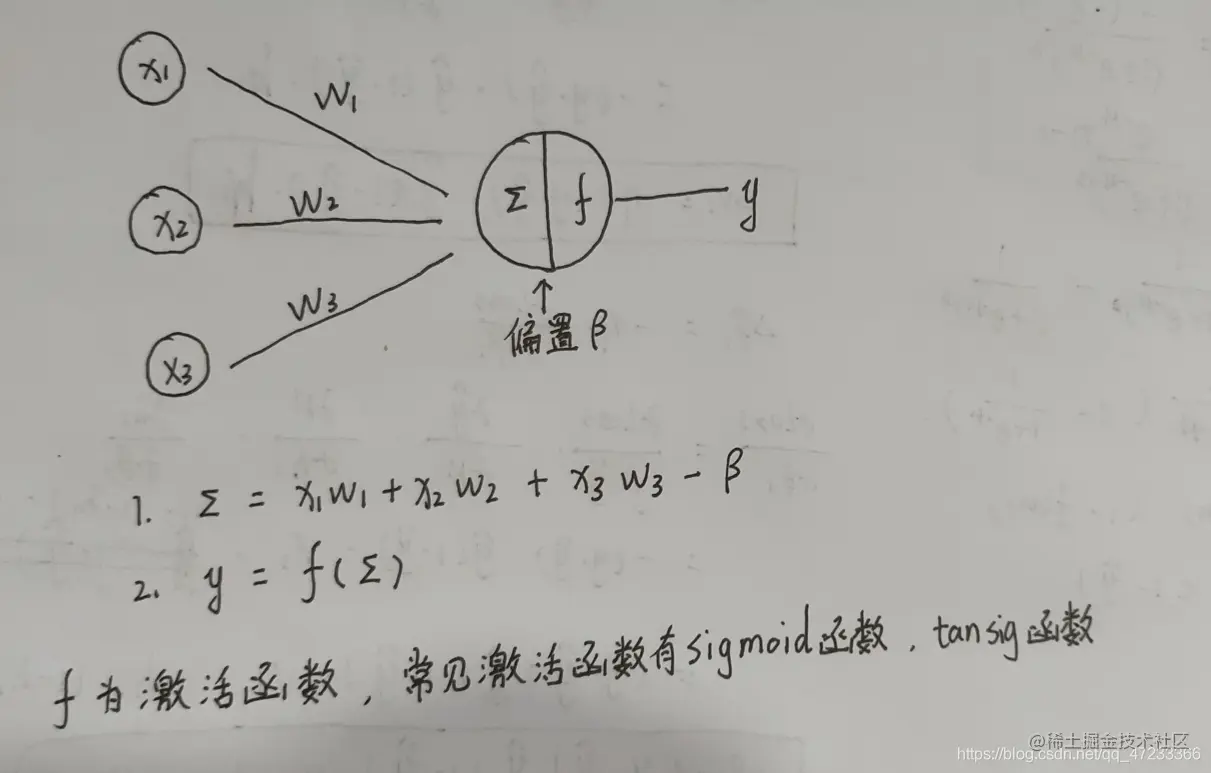 x1
W1
x2
W2
x3
W3
Σ f
y
↑
偏置 β
1. Σ = x1w1 + x2w2 + x3w3 - β
2. y = f(Σ)
f 为激活函数，常见激活函数有sigmoid函数，tansig函数
@稀土掘金技术社区
https://blog.csdn.net/qq_47233366